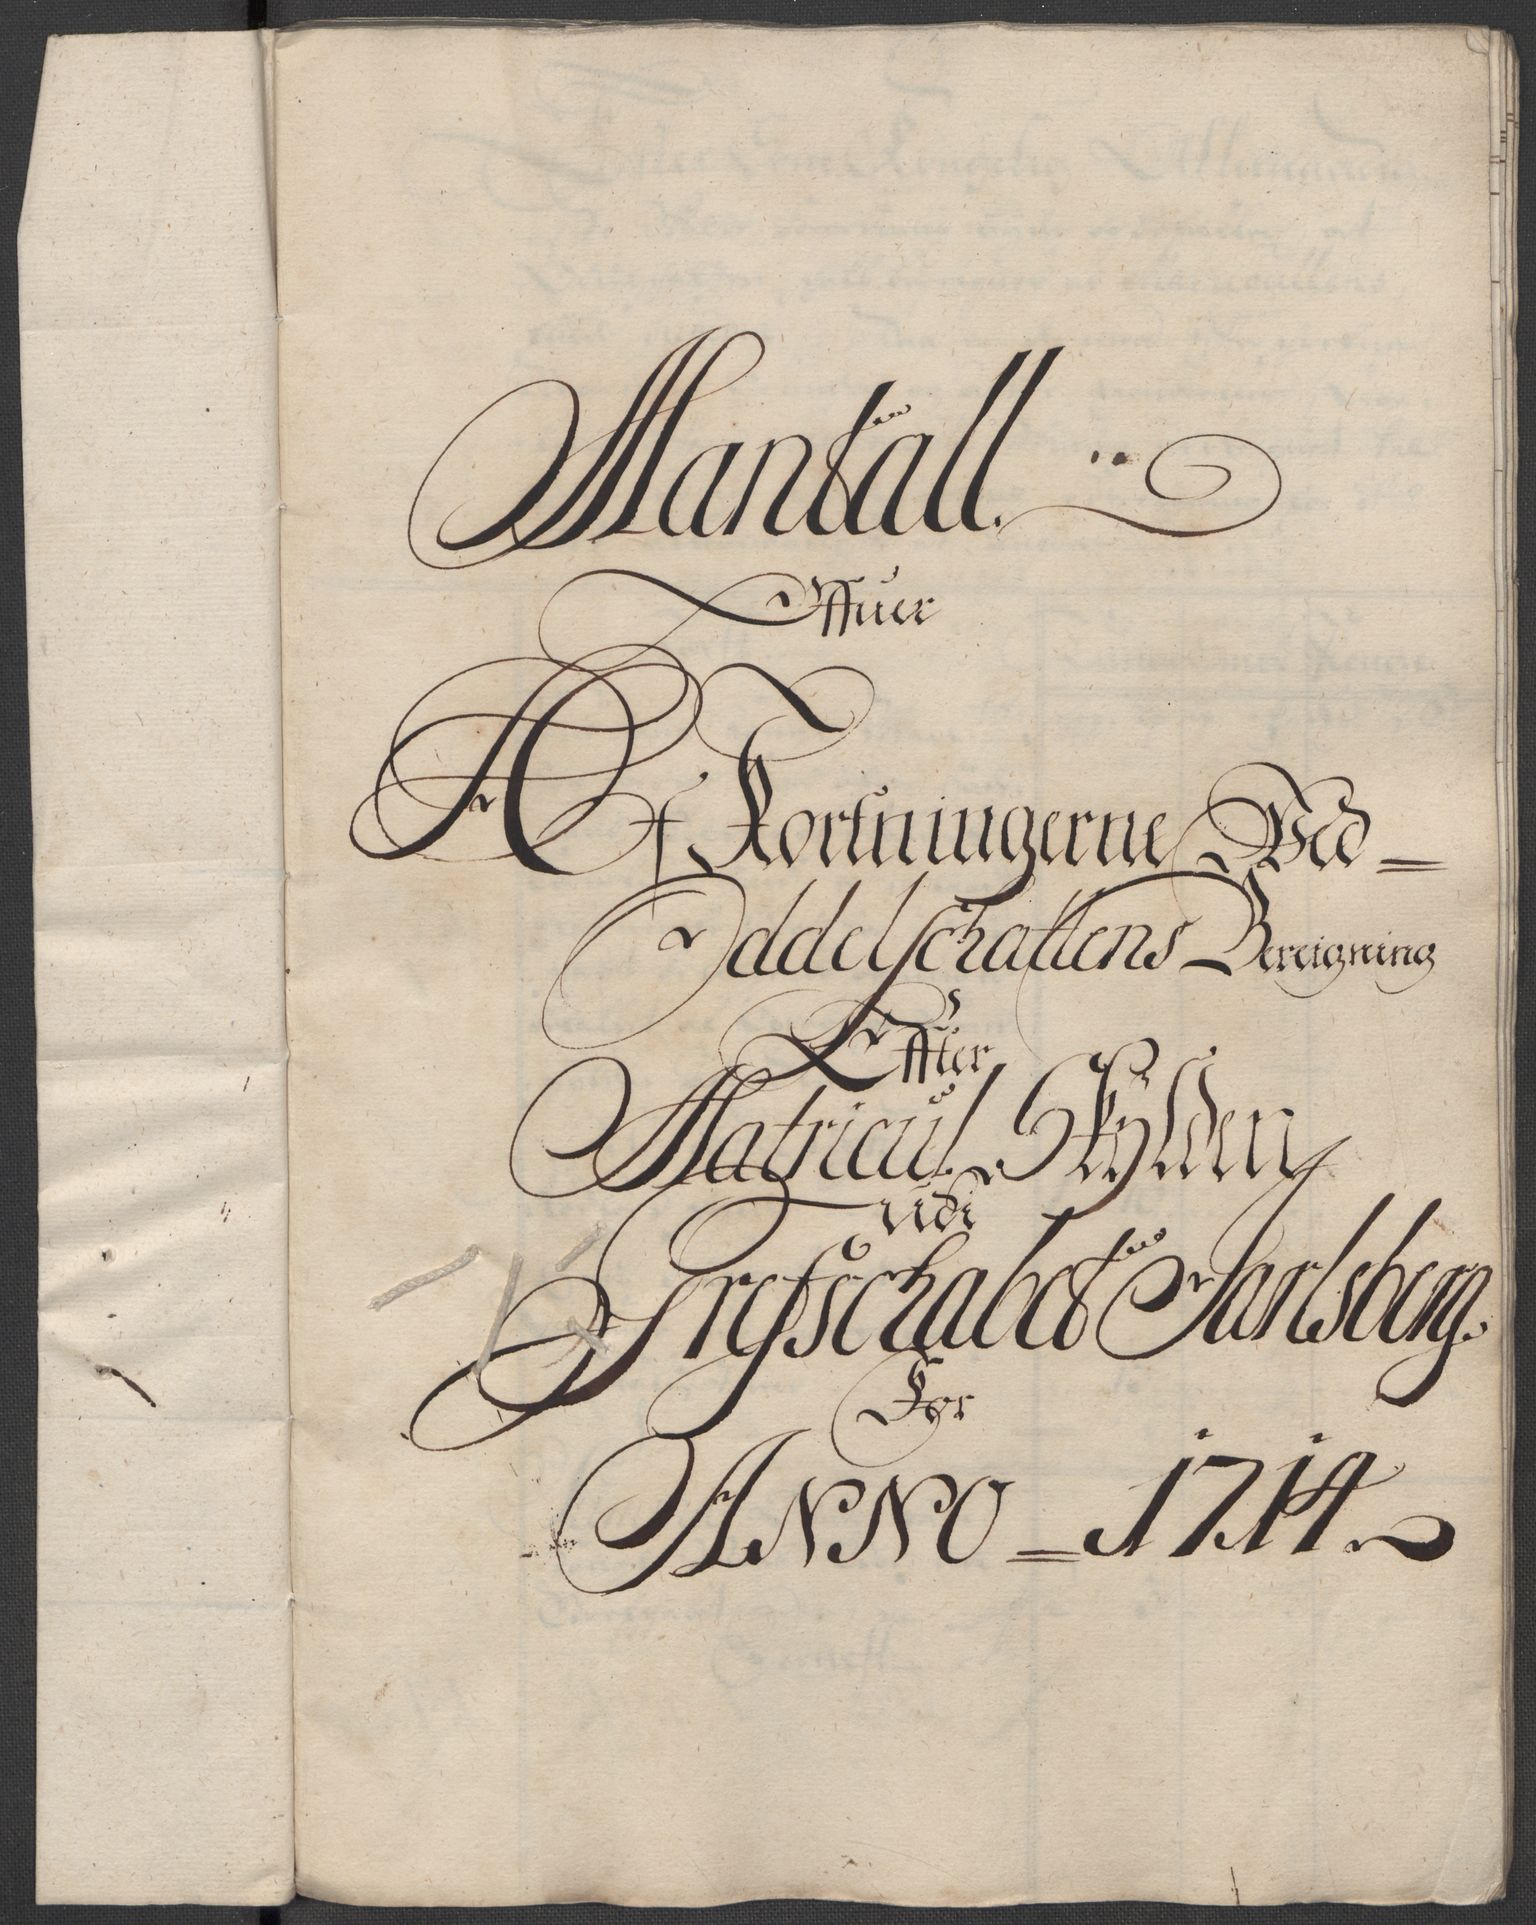 Mantall
Offuer
Af Kortningerne Ved=
Oddelschattens Bereigning
Effter
Matricul Skylden
udi
Grefschabet Jarlsberg.
For
ANNO = 1714.